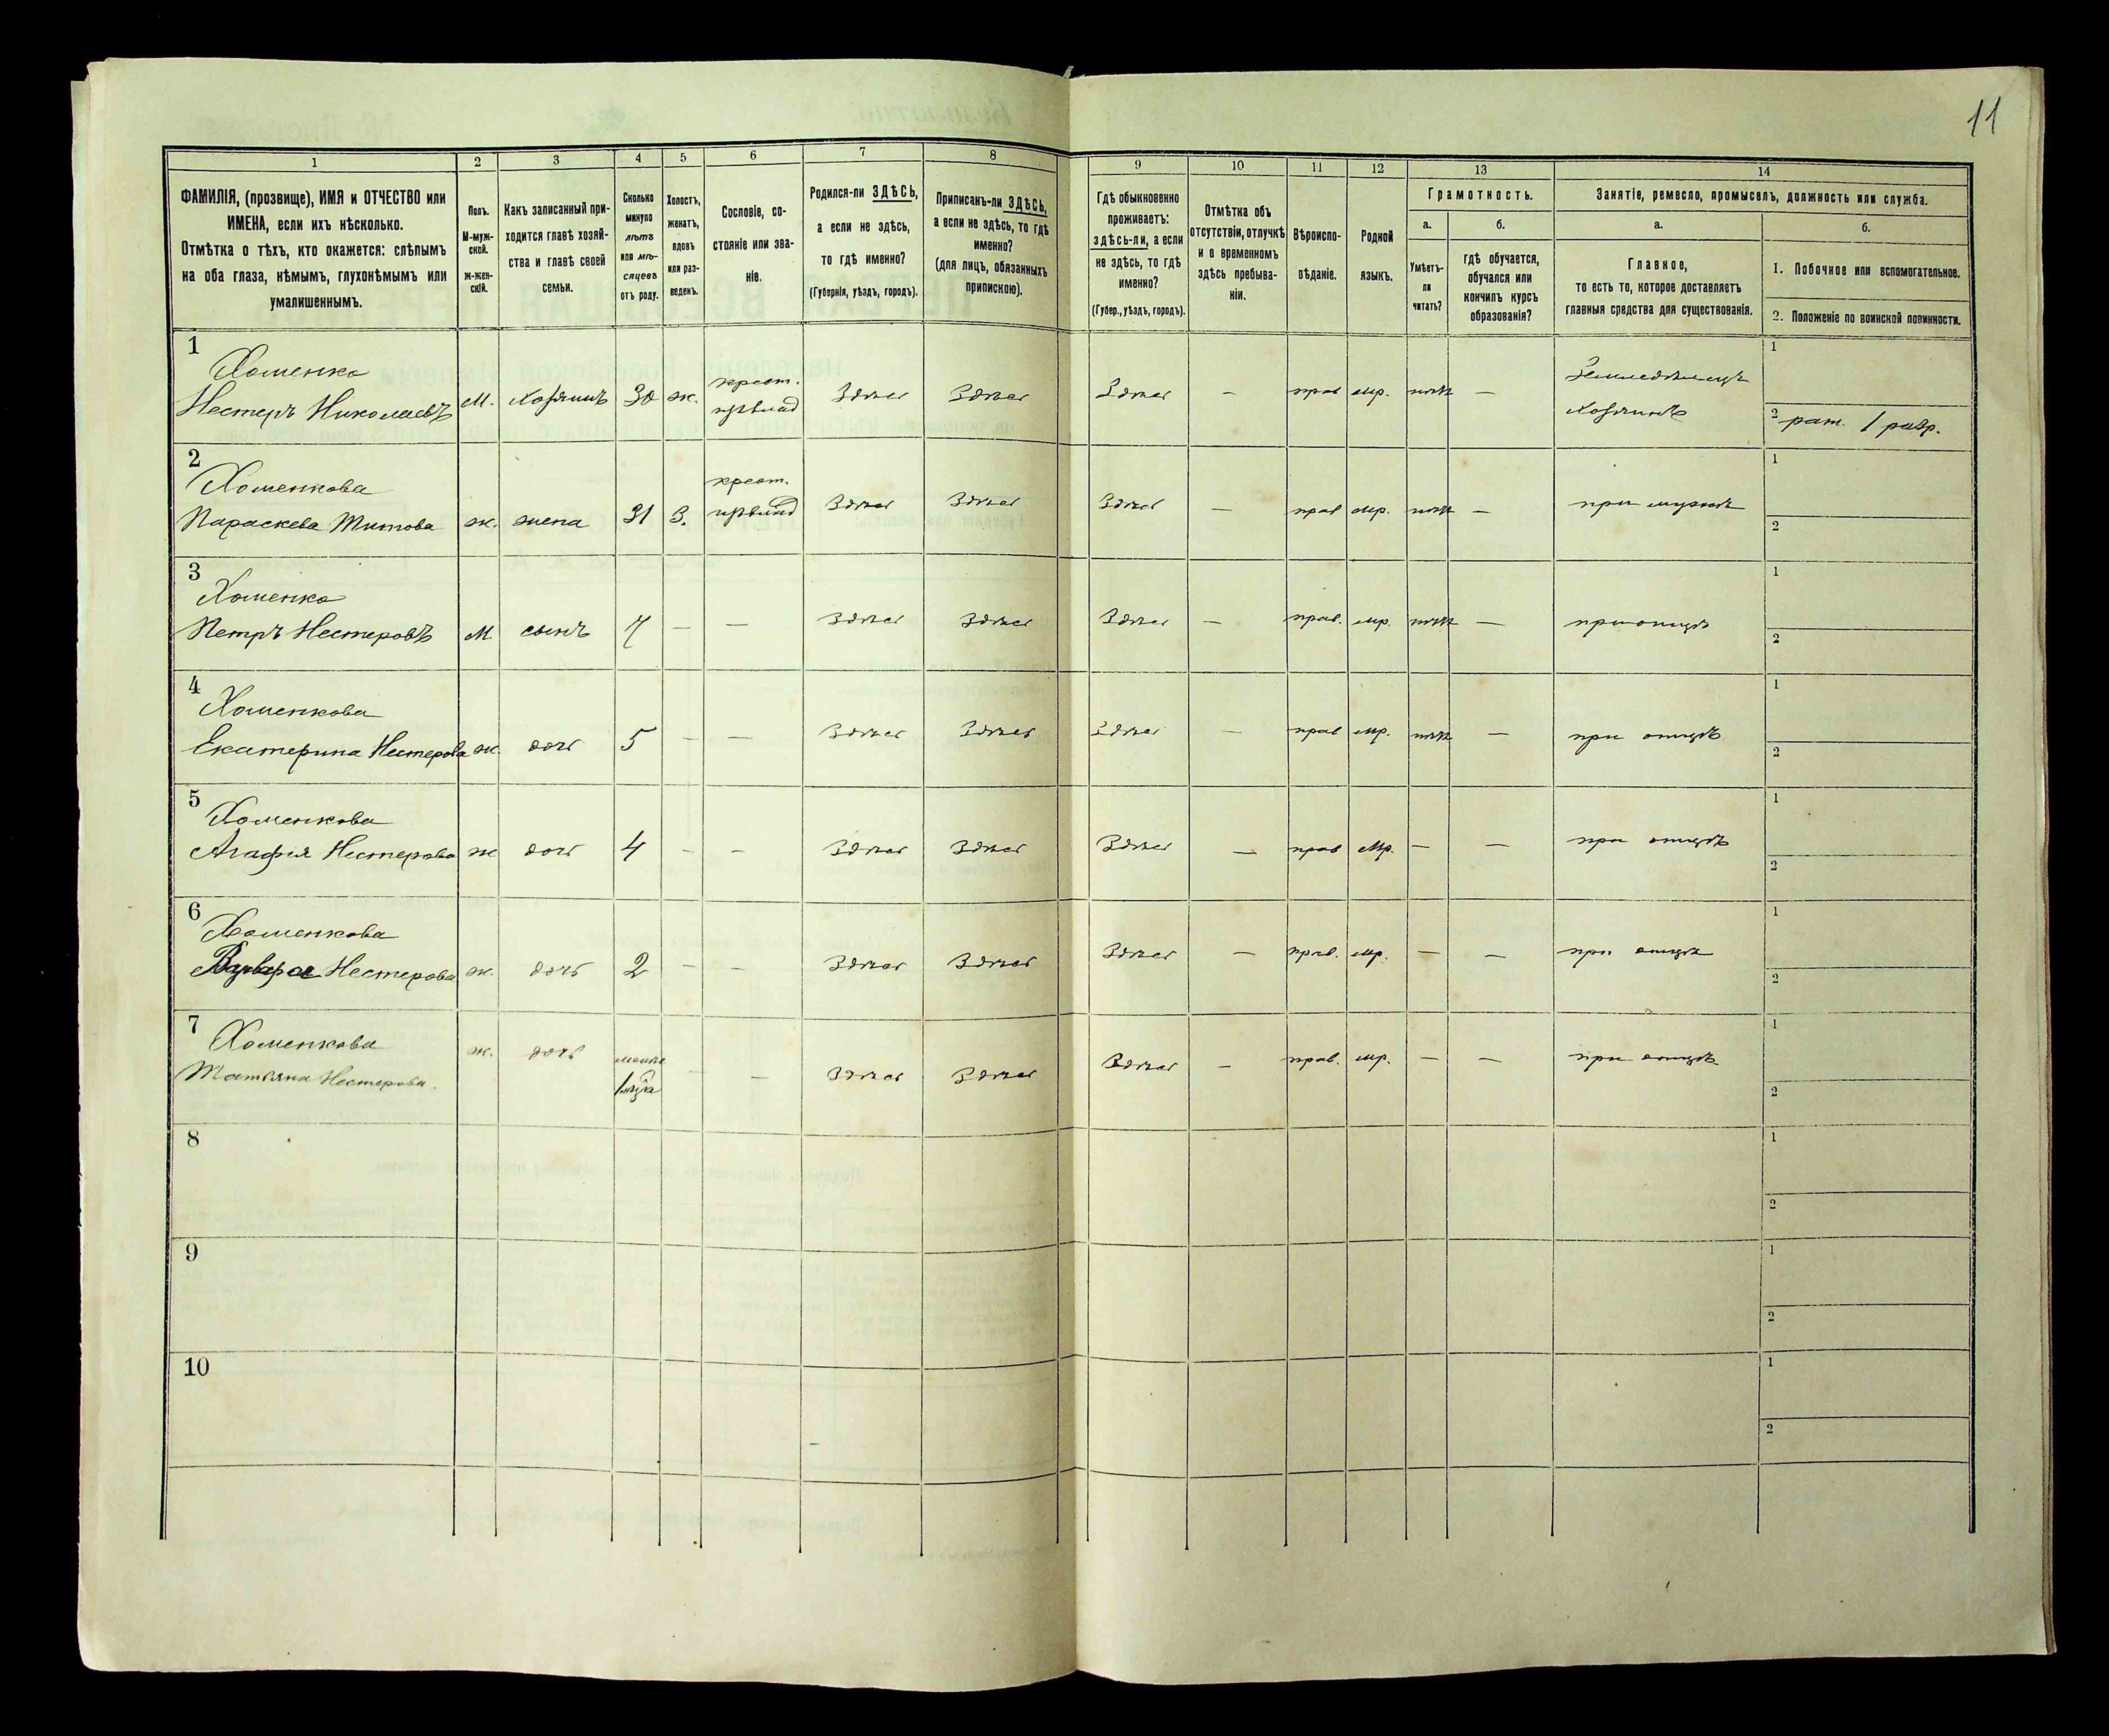 11
1 2 3 4 5 6 7 8 9 10 11 12 13 14
ФАМИЛІЯ, (прозвище), ИМЯ и ОТЧЕСТВО или
ИМЕНА, если ихъ нѣсколько.
Отмѣтка о тѣхъ, кто окажется: слѣпымъ
на оба глаза, нѣмымъ, глухонѣмымъ или
умалишеннымъ.
Полъ.
М-муж-
ской.
ж-жен-
скій.
Какъ записанный при-
ходится главѣ хозяй-
ства и главѣ своей
семьи.
Сколько
минуло
лѣтъ
или мѣ-
сяцевъ
отъ роду.
Холостъ,
женатъ,
вдовъ
или раз-
веденъ.
Сословіе, со-
стояніе или зва-
ніе.
Родился-ли ЗДѢСЬ,
а если не здѣсь,
то гдѣ именно?
(Губернія, уѣздъ, городъ).
Приписанъ-ли ЗДѢСЬ,
а если не здѣсь, то гдѣ
именно?
(для лицъ, обязанныхъ
припискою).
Гдѣ обыкновенно
проживаетъ:
здѣсь-ли, а если
не здѣсь, то гдѣ
именно?
(Губер., уѣздъ, городъ).
Отмѣтка объ
отсутствіи, отлучкѣ
и о временномъ
здѣсь пребыва-
ніи.
Вѣроиспо-
вѣданіе.
Родной
языкъ.
Грамотность.
а.
Умѣетъ-
ли
читать?
б.
гдѣ обучается,
обучался или
кончилъ курсъ
образованія?
Занятіе, ремесло, промыселъ, должность или служба.
а.
Главное,
то есть то, которое доставляетъ
главныя средства для существованія.
б.
1. Побочное или вспомогательное.
2. Положеніе по воинской повинности.
1
Хоменко
Нестеръ Николаевъ М. хозяинъ 30 ж. крест. Здѣсь Здѣсь Здѣсь — прав мр. нѣтъ — Земледѣлецъ
хозяинъ
1
2 рат. 1 разр.
2
Хоменкова
Параскева Титова ж. жена 31 З. крест. Здѣсь Здѣсь Здѣсь — прав мр. нѣтъ — при мужѣ
1
2
3
Хоменко
Петръ Нестеровъ М. сынъ 7 — — Здѣсь Здѣсь Здѣсь — прав. мр. нѣтъ — при отцѣ
1
2
4
Хоменкова
Екатерина Нестерова ж. дочь 5 — — Здѣсь Здѣсь Здѣсь — прав мр. нѣтъ — при отцѣ
1
2
5
Хоменкова
Агафія Нестерова ж дочь 4 — — Здѣсь Здѣсь Здѣсь — прав мр. — — при отцѣ
1
2
6
Хоменкова
Нестерова ж. дочь 2 — — Здѣсь Здѣсь Здѣсь — прав. мр. — — при отцѣ
1
2
7
Хоменкова
Татьяна Нестерова. ж. дочь менѣе
1 мца — — Здѣсь Здѣсь Здѣсь — прав. мр. — — при отцѣ
1
2
8
1
2
9
1
2
10
1
2